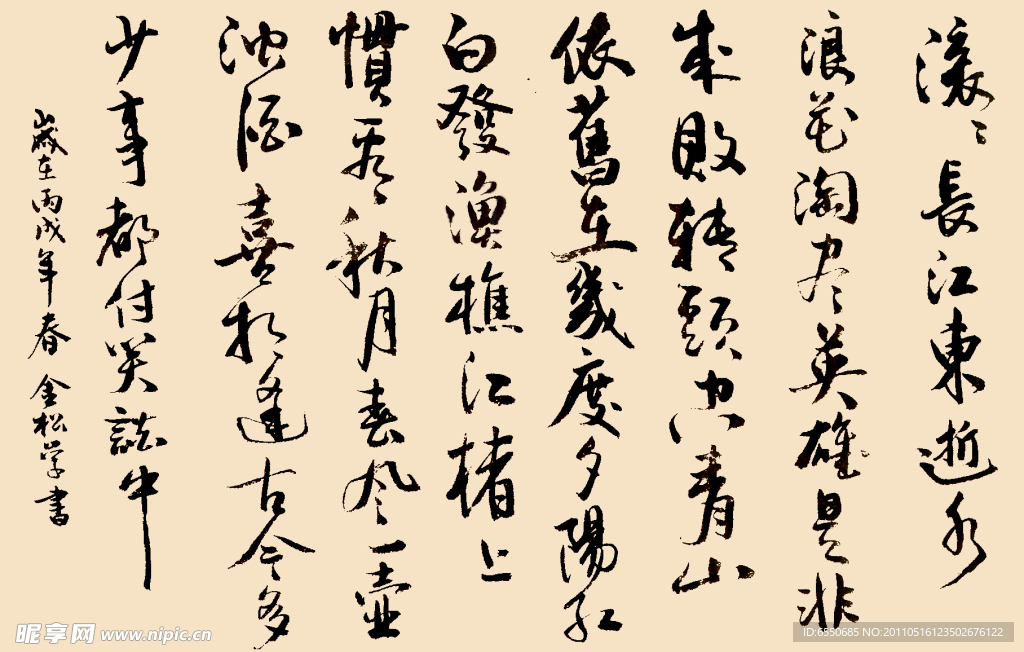 滚〻長江東逝水
浪花淘尽英雄是非
成敗转頭空青山
依舊在幾度夕陽紅
白發漁樵江楮上
慣看秋月春风一壶
浊酒喜相逢古今多
少事都付笑談中
歲在丙戌年春 金松学書
昵享网 www.nipic.cn
ID:6350685 NO:20110516123502676122